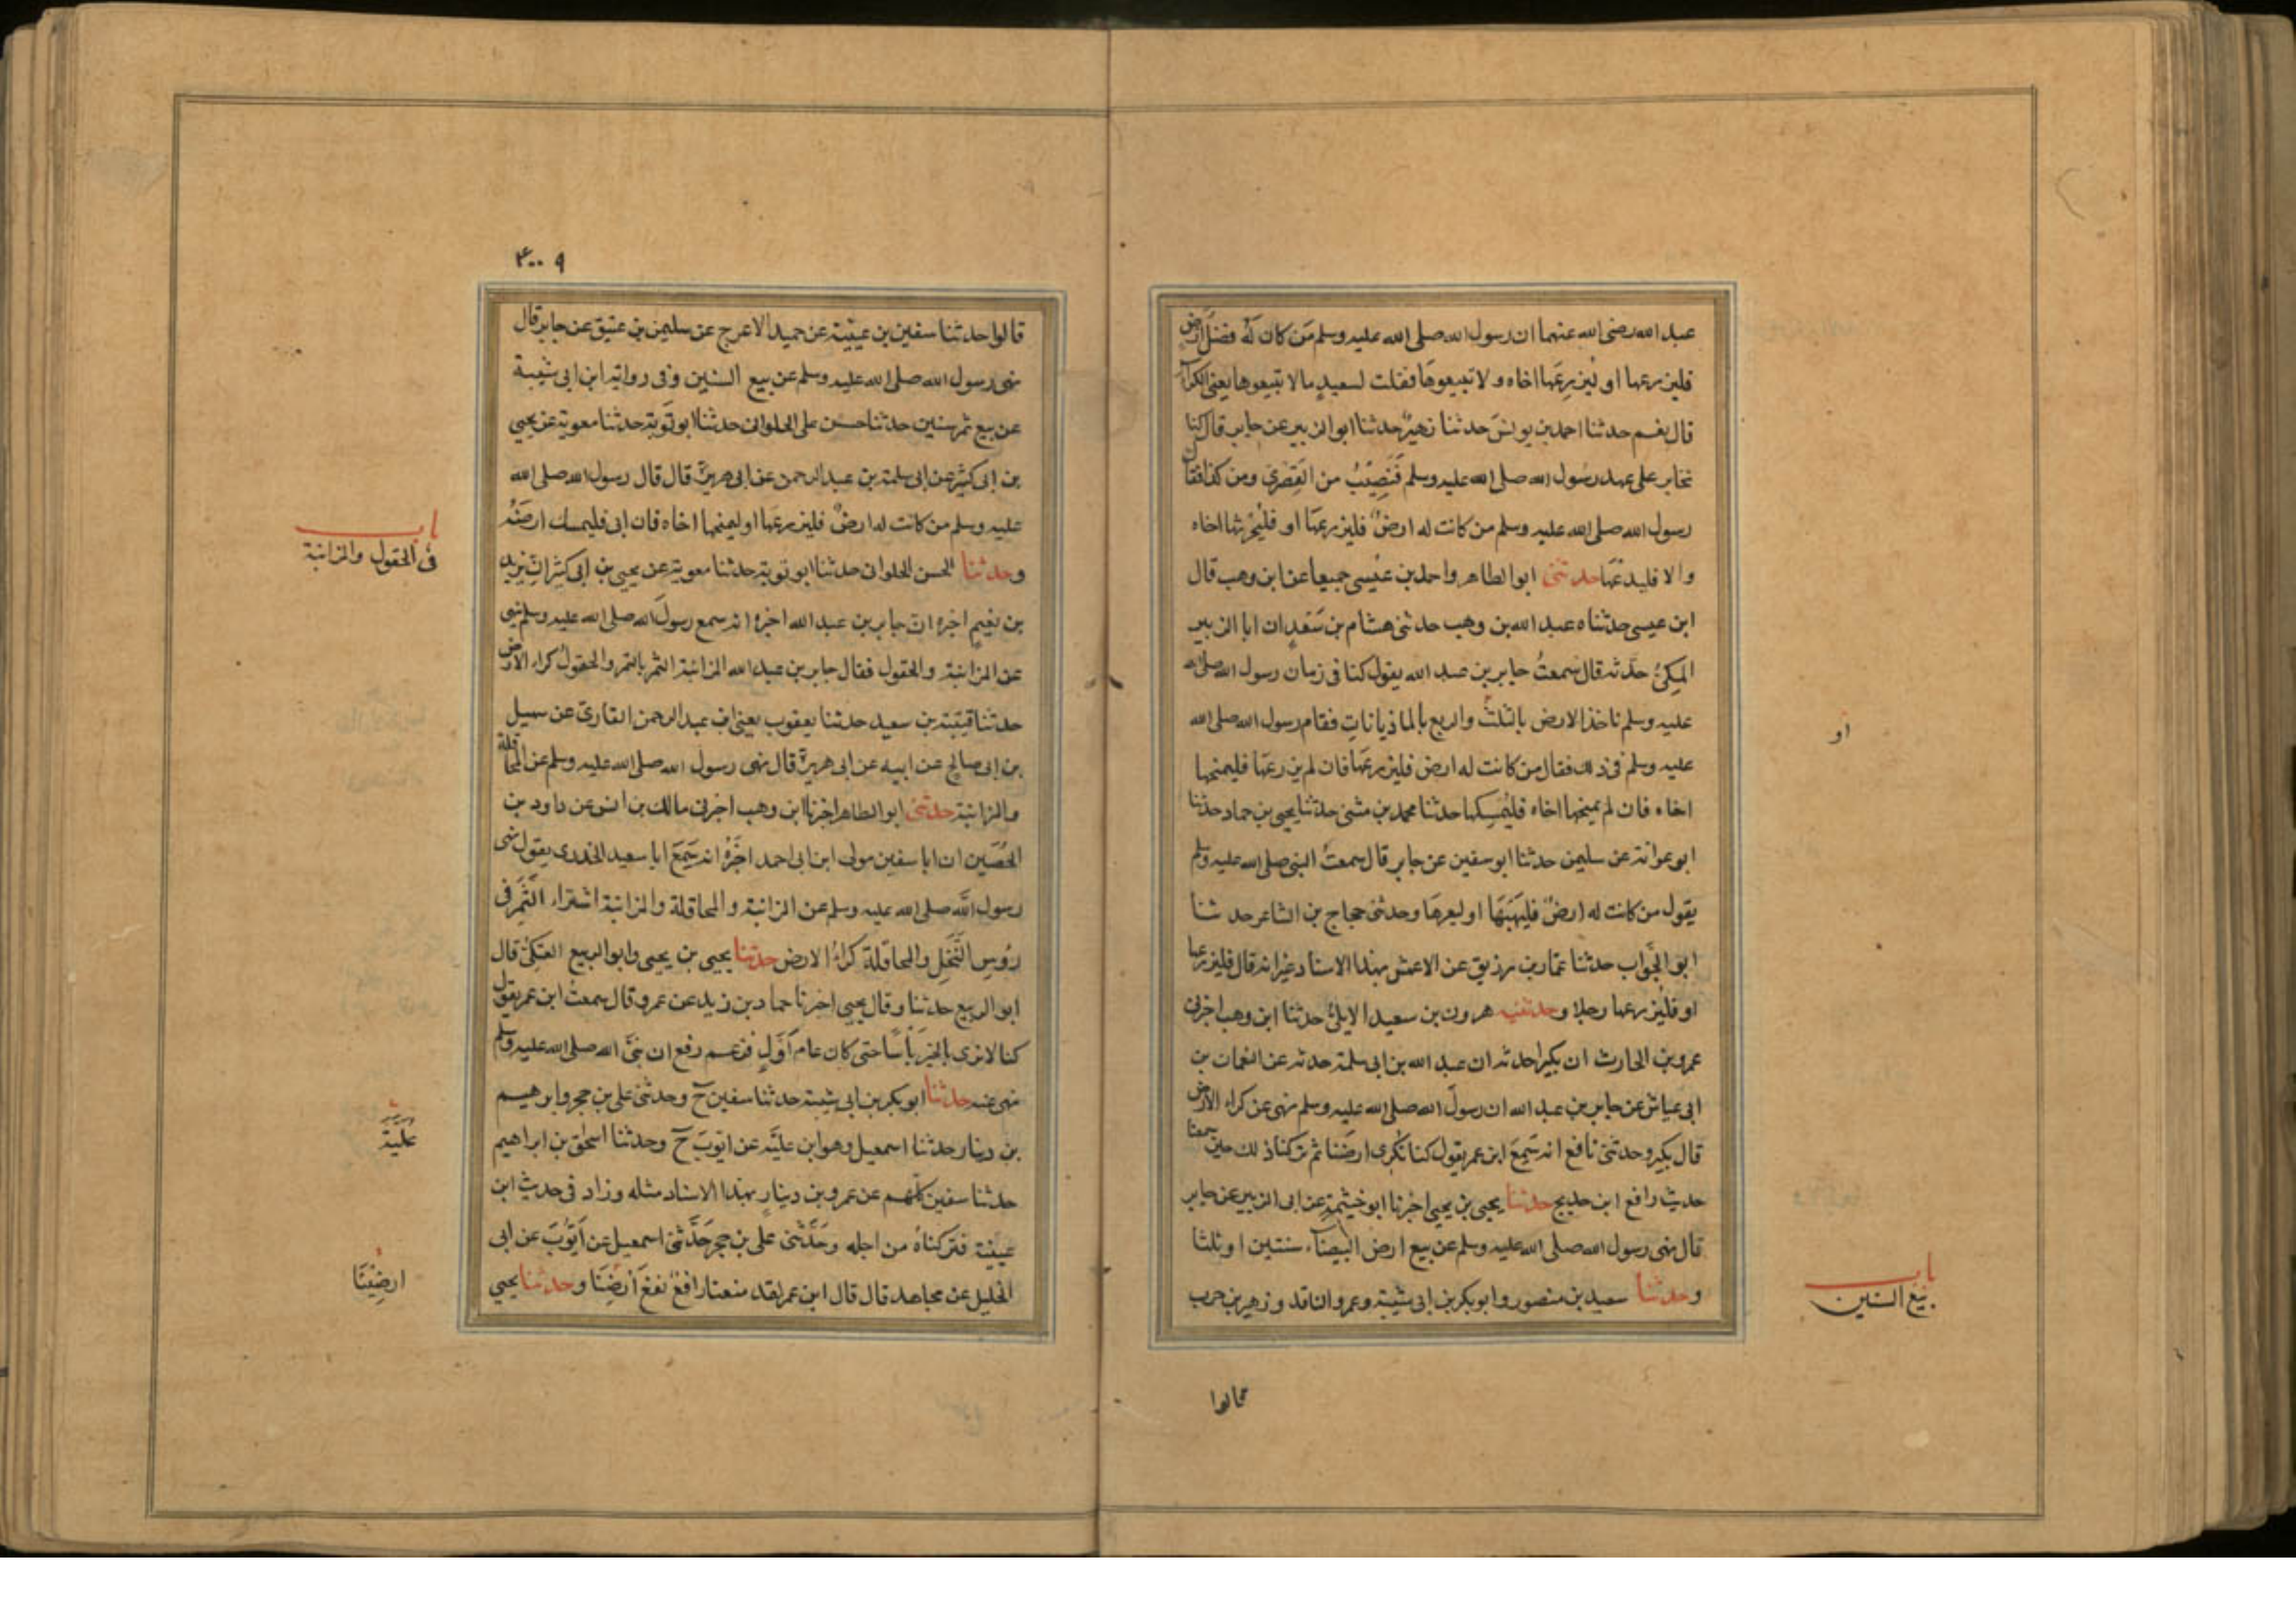 عبد الله رضى الله عنهما ان رسول الله صلى الله عليه وسلم مَن كان لَهُ فضل ارض
فليزرعها او ليزرعها اخاه ولا تبيعوها فقلت لسعيد ما لا تبيعوها يعنى الكراء
قال نعم حدثنا احمد بن يونس حدثنا زهير حدثنا ابو الزبير عن جابر قال كنا
نخابر على عهد رسول الله صلى الله عليه وسلم فنصيب من القصرى ومن كذا فقال
رسول الله صلى الله عليه وسلم من كانت له ارض فليزرعها او فليحرثها اخاه
والا فليدعها حدثنى ابو الطاهر واحمد بن عيسى جميعا عن ابن وهب قال
ابن عيسى حدثناه عبد الله بن وهب حدثنى هشام بن سعد ان ابا الزبير
المكى حدثه قال سمعت جابر بن عبد الله يقول كنا فى زمان رسول الله صلى الله
عليه وسلم ناخذ الارض بالثلث والربع بالماذيانات فقام رسول الله صلى الله
او
عليه وسلم فى ذلك فقال من كانت له ارض فليزرعها فان لم يزرعها فليمنحها
اخاه فان لم يمنحها اخاه فليمسكها حدثنا محمد بن مثنى حدثنا يحيى بن حماد حدثنا
ابو عوانة عن سليمن حدثنا ابو سفين عن جابر قال سمعت النبى صلى الله عليه وسلم
يقول من كانت له ارض فليهبها او ليعرها وحدثنى حجاج بن الشاعر حدثنا
ابو الجواب حدثنا عمار بن رزيق عن الاعمش بهذا الاسناد غير انه قال فليزرعها
او فليزرعها رجلا وحدثنيه هرون بن سعيد الايلى حدثنا ابن وهب اخبرنى
عمرو بن الحارث ان بكيرا حدثه ان عبد الله بن ابى سلمة حدثه عن النعمان بن
ابى عياش عن جابر بن عبد الله ان رسول الله صلى الله عليه وسلم نهى عن كراء الارض
قال بكير وحدثنى نافع انه سمع ابن عمر يقول كنا نكرى ارضنا ثم تركنا ذلك حين سمعنا
حديث رافع ابن خديج حدثنا يحيى بن يحيى اخبرنا ابو خيثمة عن ابى الزبير عن جابر
قال نهى رسول الله صلى الله عليه وسلم عن بيع ارض البيضاء سنتين او ثلثا
وحدثنا سعيد بن منصور وابو بكر بن ابى شيبة وعمرو الناقد وزهير بن حرب
باب
بيع السنين
قالوا
٩
قالوا حدثنا سفين بن عيينة عن حميد الاعرج عن سليمن بن عتيق عن جابر قال
نهى رسول الله صلى الله عليه وسلم عن بيع السنين وفى رواية ابن ابى شيبة
عن بيع ثمر سنين حدثنا حسن على الحلوانى حدثنا ابو توبة حدثنا معوية عن يحيى
بن ابى كثير عن ابى سلمة بن عبد الرحمن عن ابى هريرة قال قال رسول الله صلى الله
عليه وسلم من كانت له ارض فليزرعها او ليمنحها اخاه فان ابى فليمسك ارضه
باب
فى الحقول والمزابنة
وحدثنا الحسن الحلوانى حدثنا ابو توبة حدثنا معوية عن يحيى بن ابى كثير ان يزيد
بن نعيم اخبره ان جابر بن عبد الله اخبره انه سمع رسول الله صلى الله عليه وسلم نهى
عن المزابنة والحقول فقال جابر بن عبد الله المزابنة الثمر بالتمر والحقول كراء الارض
حدثنا قتيبة بن سعيد حدثنا يعقوب يعنى ابن عبد الرحمن القارى عن سهيل
بن ابى صالح عن ابيه عن ابى هريرة قال نهى رسول الله صلى الله عليه وسلم عن المحاقلة
والمزابنة حدثنى ابو الطاهر اخبرنا ابن وهب اخبرنى مالك بن انس عن داود بن
الحصين ان ابا سفين مولى ابن ابى احمد اخبره انه سمع ابا سعيد الخدرى يقول نهى
رسول الله صلى الله عليه وسلم عن المزابنة والمحاقلة والمزابنة اشتراء الثمر فى
رؤس النخل والمحاقلة كراء الارض حدثنا يحيى بن يحيى وابو الربيع العتكى قال
ابو الربيع حدثنا وقال يحيى اخبرنا حماد بن زيد عن عمرو قال سمعت ابن عمر يقول
كنا لا نرى بالخبر باسا حتى كان عام اول فزعم رفع ان نبى الله صلى الله عليه وسلم
نهى عنه حدثنا ابو بكر بن ابى شيبة حدثنا سفين ح وحدثنى على بن حجر وابرهيم
بن دينار حدثنا اسمعيل وهو ابن علية عن ايوب ح وحدثنا اسحق بن ابراهيم
علية
حدثنا سفين كلهم عن عمرو بن دينار بهذا الاسناد مثله وزاد فى حديث ابن
عيينة فتركناه من اجله وحدثنى على بن حجر حدثنى اسمعيل عن ايوب عن ابى
الخليل عن مجاهد قال قال ابن عمر لقد منعنا رافع نفع ارضنا وحدثنا يحيى
ارضينا